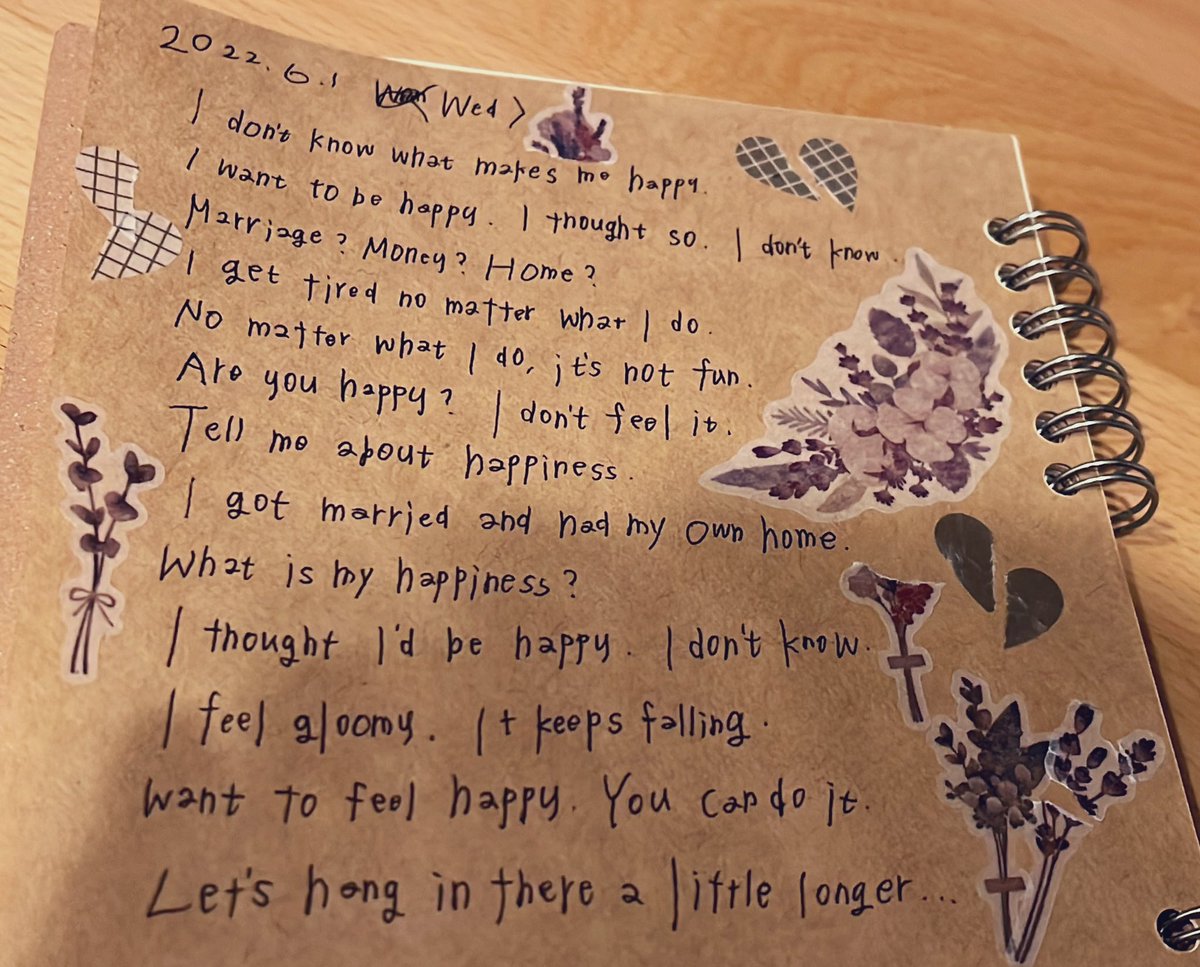 2022.6.1 (Wed)
I don't know what makes me happy.
I want to be happy. I thought so. I don't know.
Marriage? Money? Home?
I get tired no matter what I do.
No matter what I do, it's not fun.
Are you happy? I don't feel it.
Tell me about happiness.
I got married and had my own home.
What is my happiness?
I thought I'd be happy. I don't know.
I feel gloomy. It keeps falling.
Want to feel happy. You can do it.
Let's hang in there a little longer...